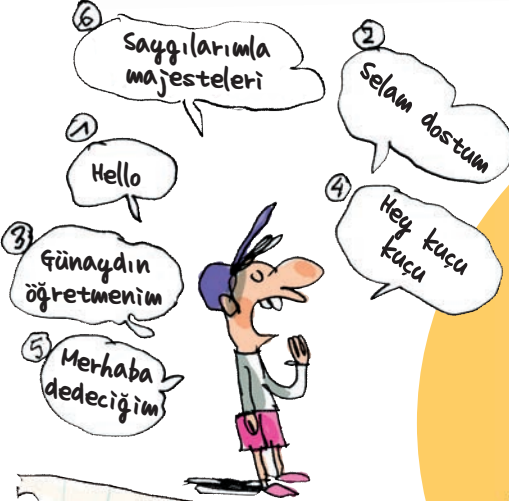 6
Saygılarımla
majesteleri
2
Selam dostum
1
Hello
4
Hey kuçu
kuçu
3
Günaydın
öğretmenim
5
Merhaba
dedeciğim